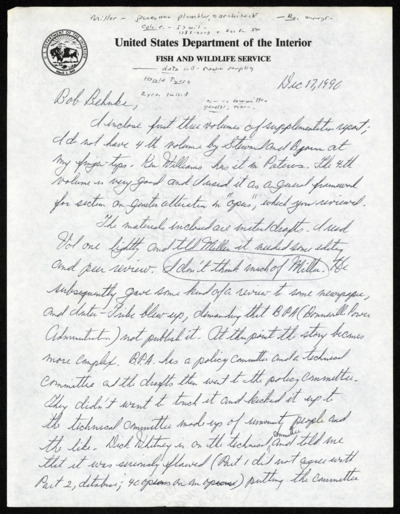 Miller –
United States Department of the Interior
FISH AND WILDLIFE SERVICE
Dec 17, 1990
Bob Behnke,
I enclose first three volumes of supplementation report;
I do not have 4th volume by Steward and Bjornn at
my finger tips. Ken Williams has it in Pateros. The 4th
volume is very good and I used it as a general framework
for section on genetic alteration in "opus", which you reviewed.
The materials enclosed are initial drafts. I read
Vol one lightly, and told Miller it needed some editing
and peer review. I don't think much of Miller. He
subsequently gave some kind of a review to some newspaper,
and Inter-Tribe blew up, demanding that BPA (Bonneville Power
Administration) not publish it. At this point the story becomes
more complex. BPA has a policy committee and a technical
committee and the drafts then went to the policy committee.
They didn't want to touch it and kicked it up to
the technical committee made up of university people and
the like. Dick Whitney is on the technical and told me
that it was seriously flawed (Part 1 did not agree with
Part 2, database; 40 opinions on an opinion) putting the committee